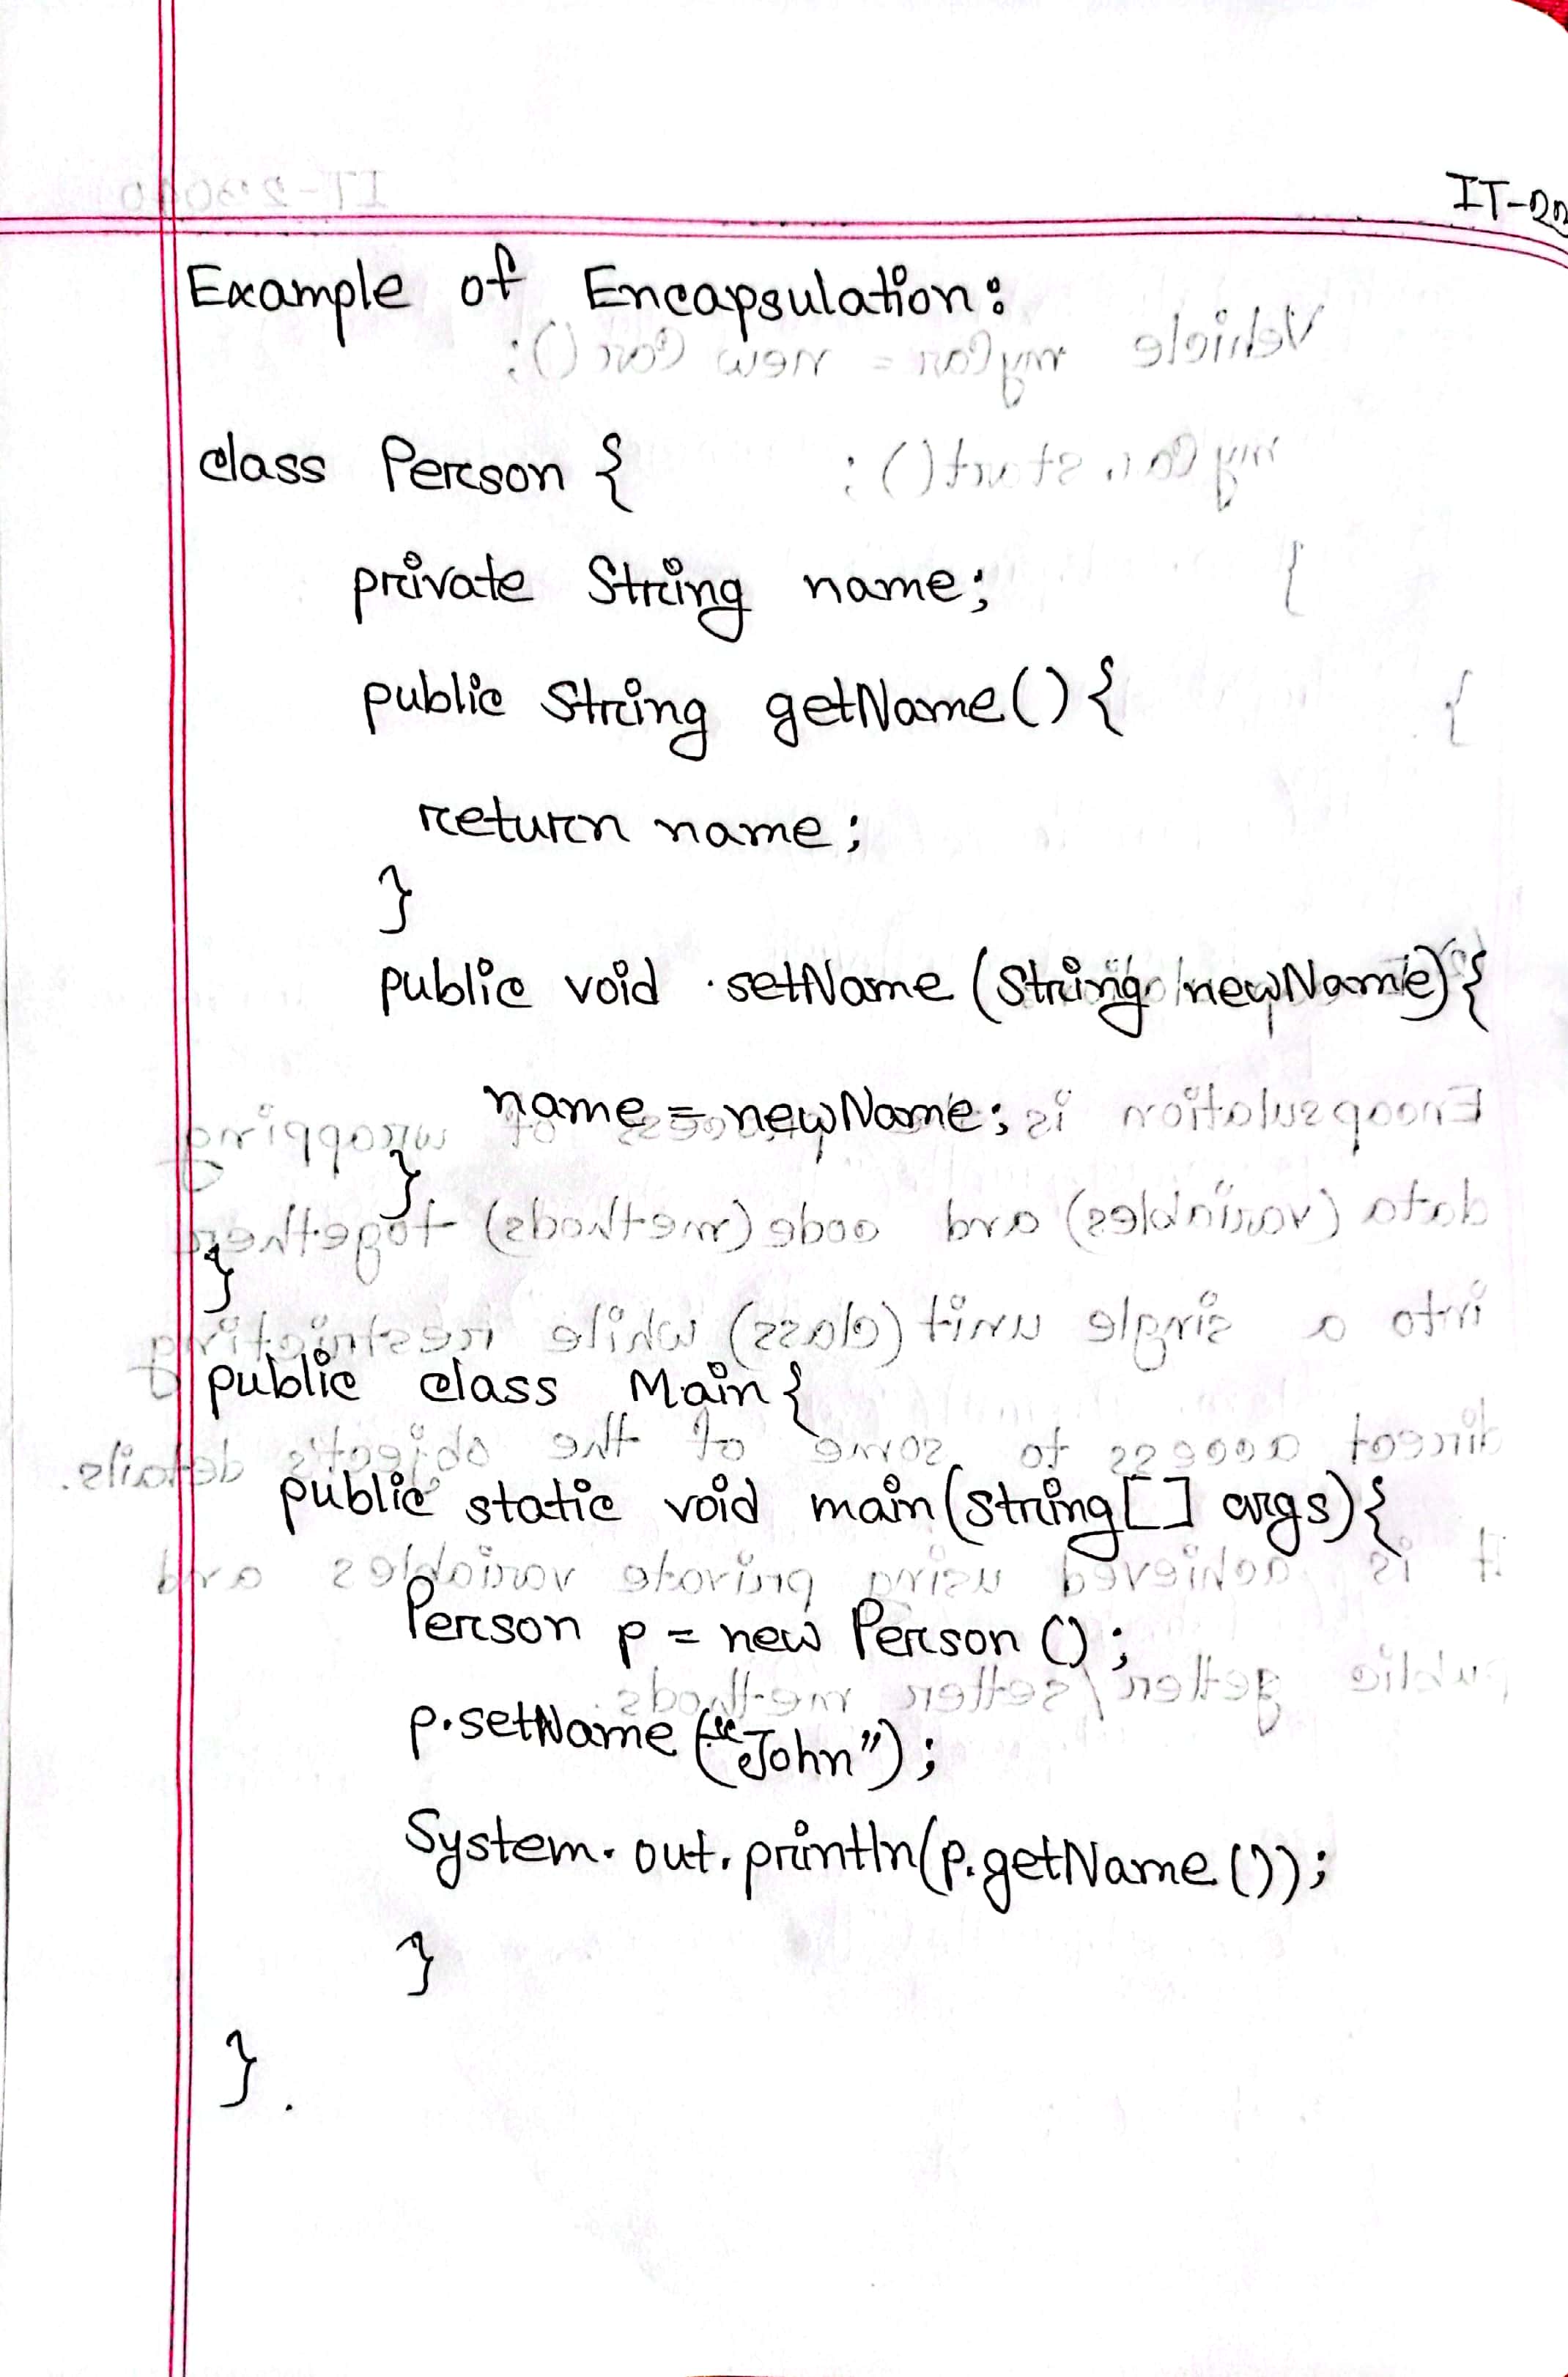 IT-22
Example of Encapsulation:
class Person {
private String name;
public String getName() {
return name;
}
public void setName (String newName) {
name = newName;
}
}
public class Main {
public static void main(String[] args) {
Person p = new Person ();
p.setName ("John");
System.out.println(p.getName());
}
}.